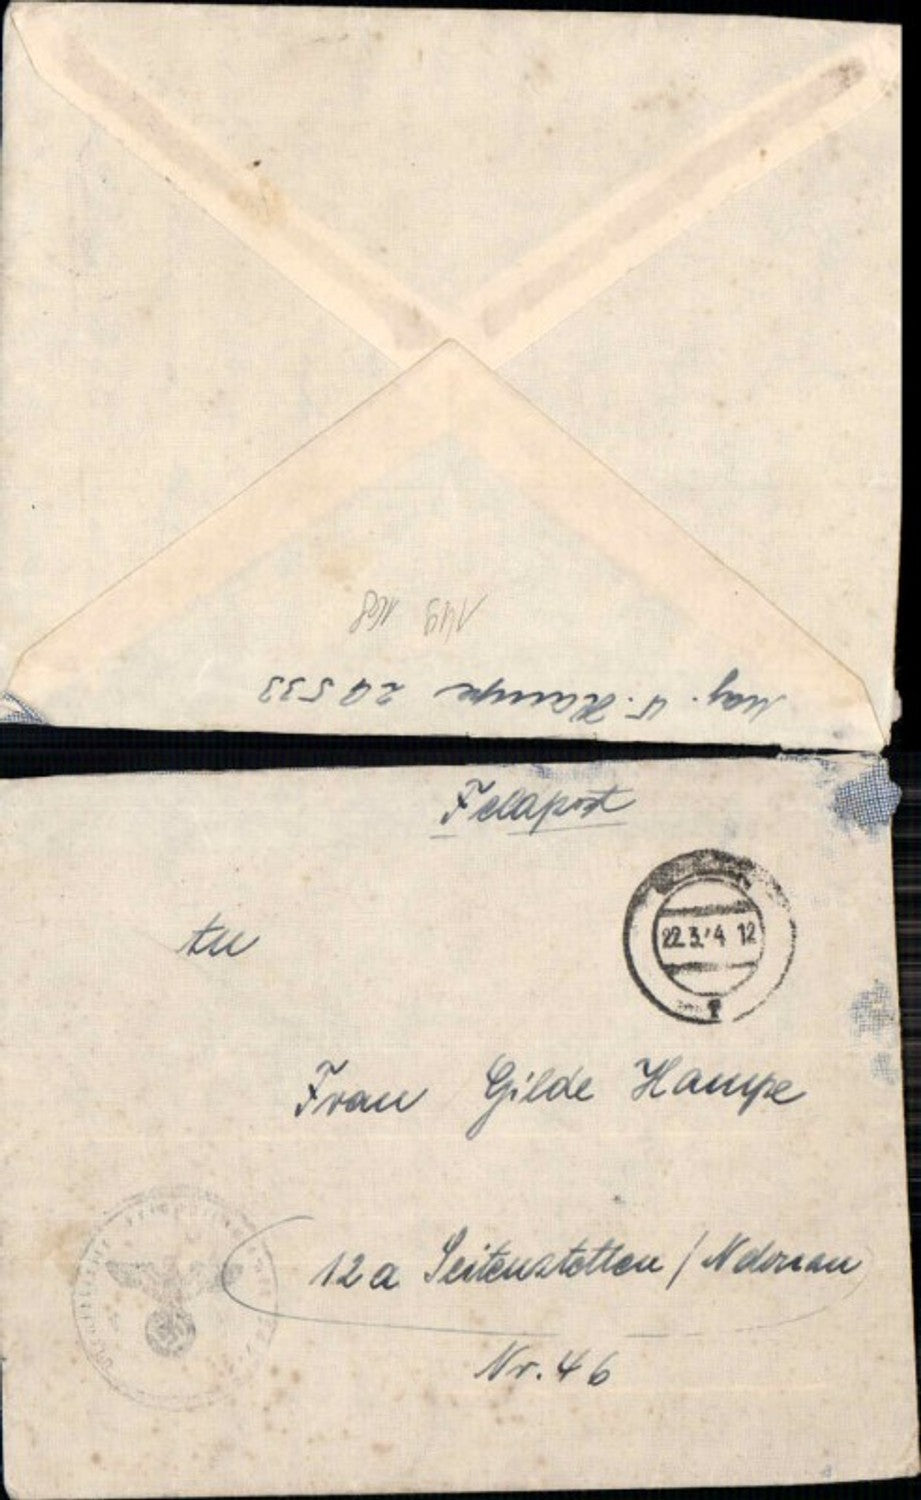 149 168
Maj. F. Hampe 29533
Feldpost
An
22.3.'4 12
Frau Gilde Hampe
12a Seitenstetten / Ndonau
Nr. 46